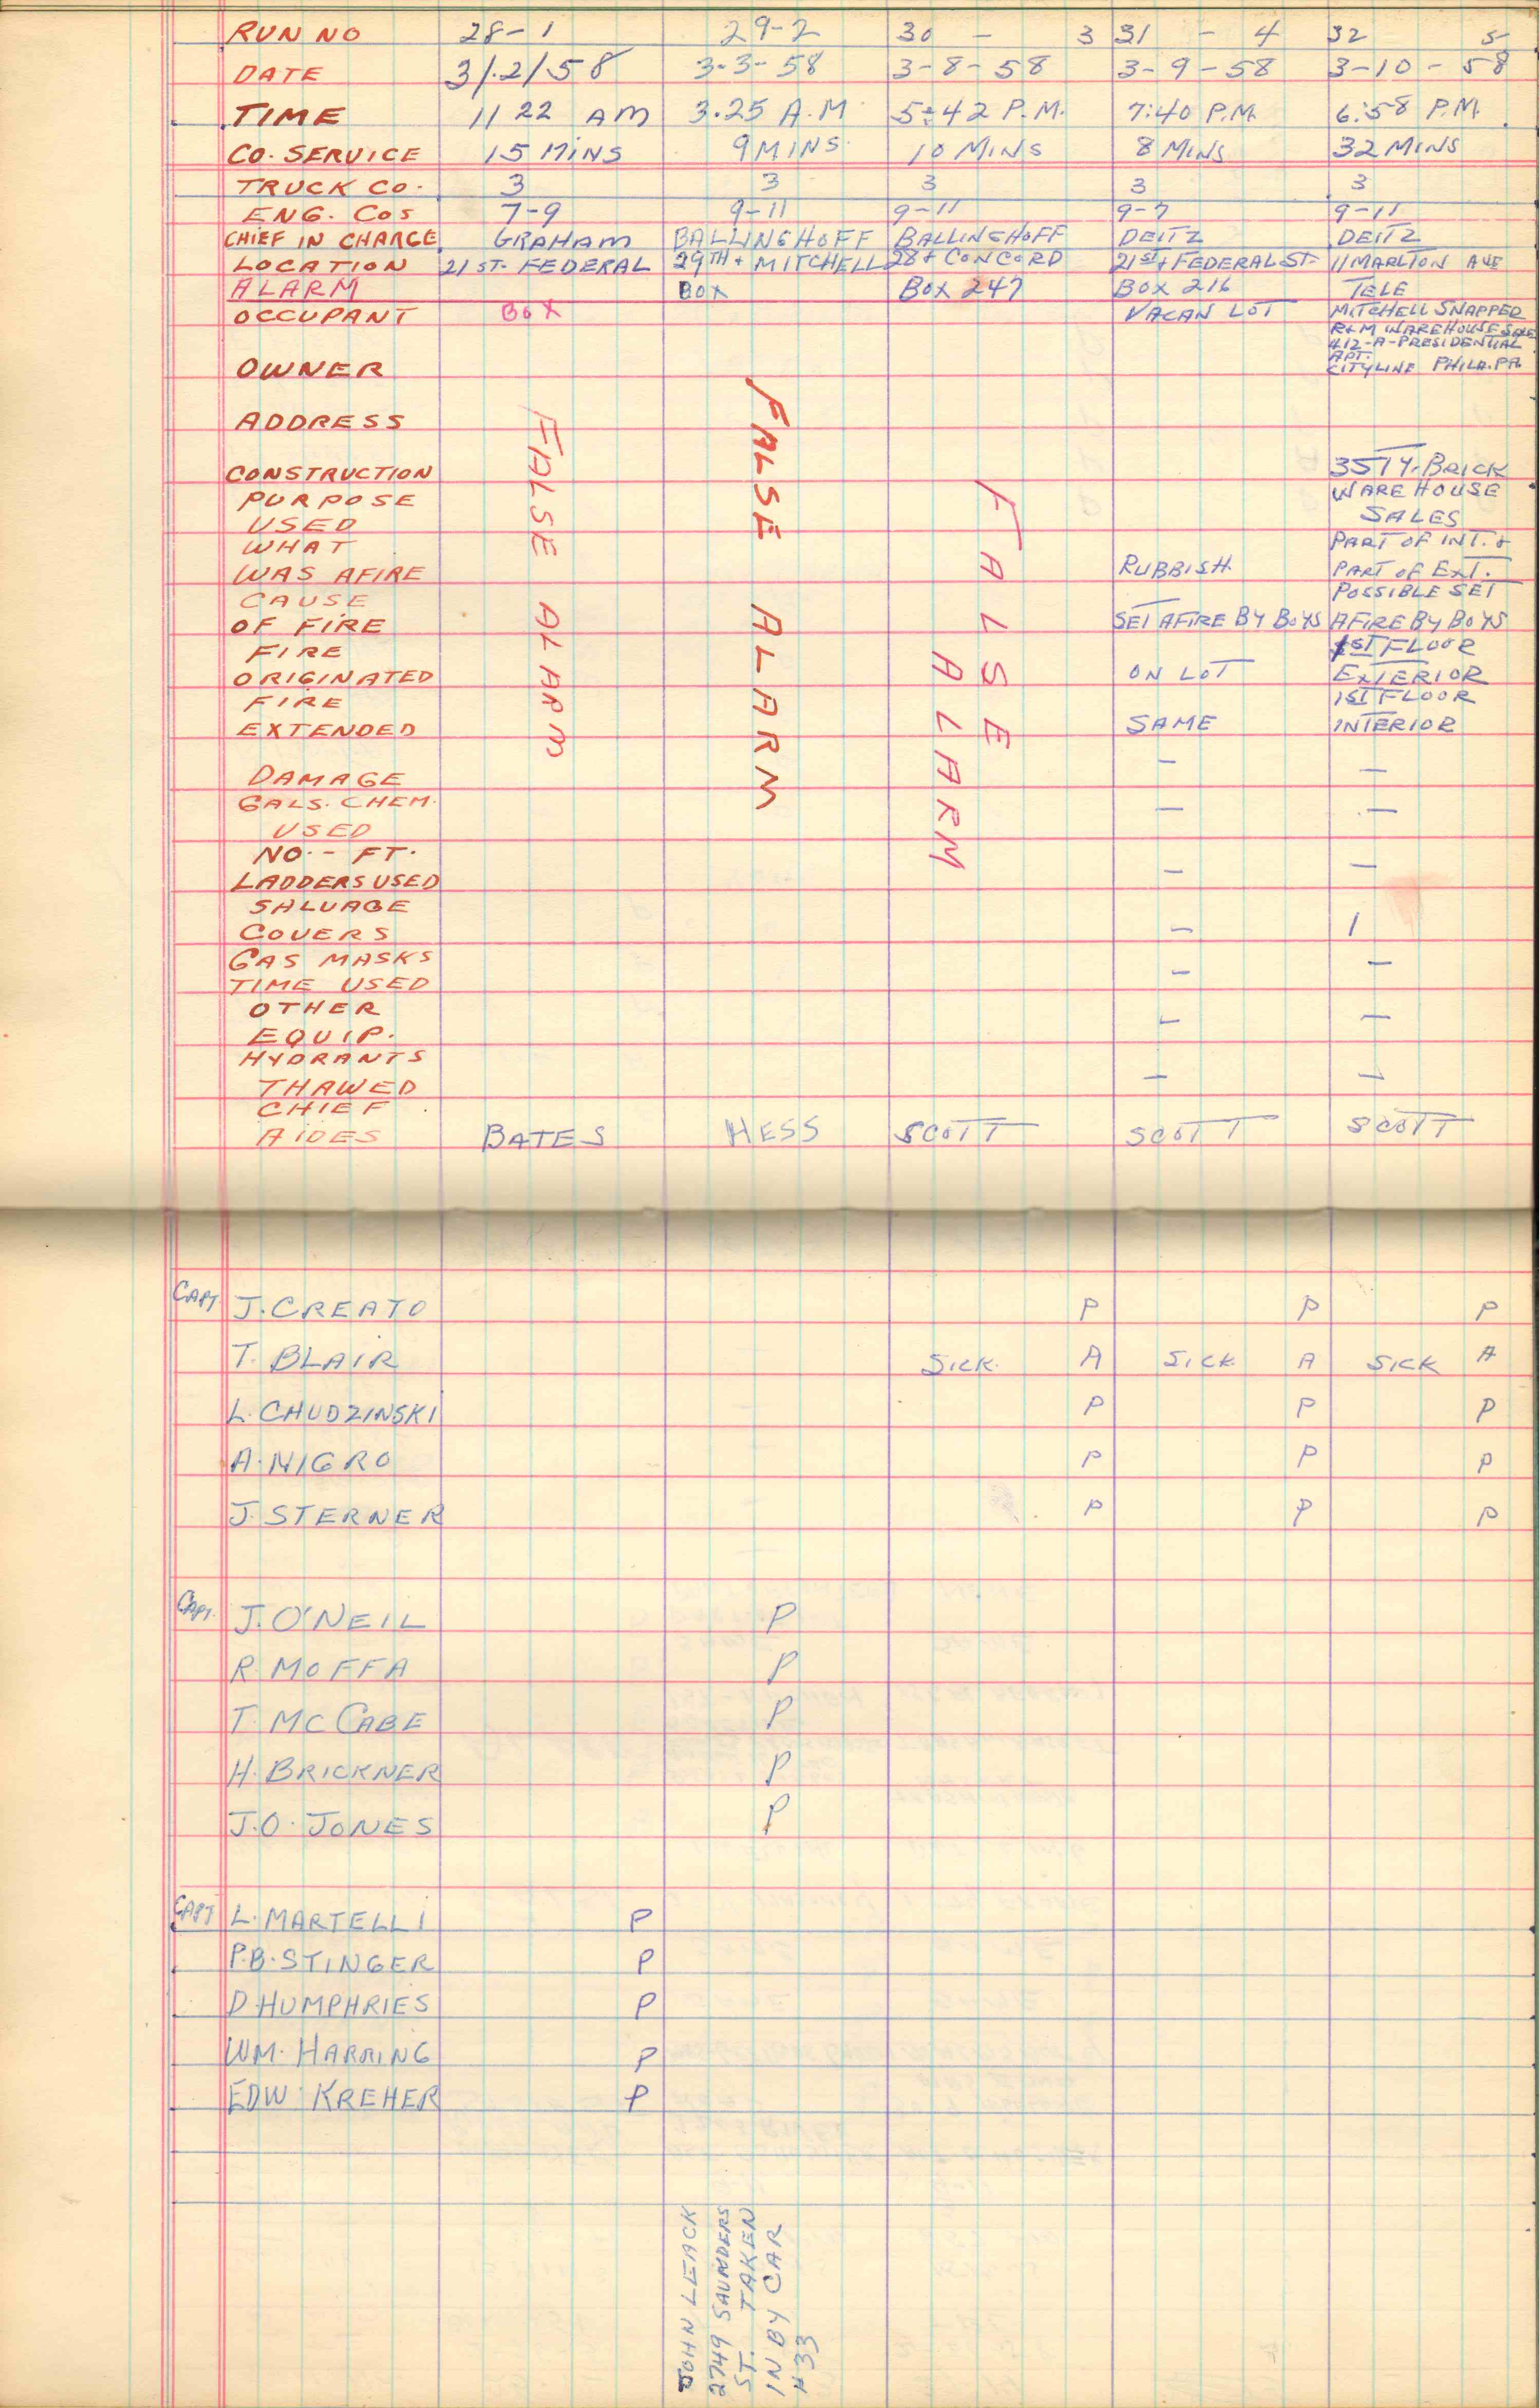 RUN NO 28-1 29-2 30 - 3 31 - 4 32 5
DATE 3/.2/58 3-3-58 3-8-58 3-9-58 3-10-58
TIME 11 22 AM 3.25 A.M 5:42 P.M. 7:40 P.M. 6:58 P.M.
CO. SERVICE 15 MINS 9 MINS. 10 MINS 8 MINS 32 MINS
TRUCK CO. 3 3 3 3 3
ENG. COS 7-9 9-11 9-11 9-7 9-11
CHIEF IN CHARGE GRAHAM BALLINGHOFF BALLINGHOFF DEITZ DEITZ
LOCATION 21 ST. FEDERAL 29TH + MITCHELL 28 + CONCORD 21ST + FEDERAL ST. 11 MARLTON AVE
ALARM BOX BOX 247 BOX 216 TELE
OCCUPANT BOX VACAN LOT MITCHELL SNAPPER
R&M WAREHOUSE SALE
412-A-PRESIDENTIAL
APT.
OWNER CITYLINE PHILA. PA.
ADDRESS
CONSTRUCTION 3 STY. BRICK
PURPOSE WARE HOUSE
USED SALES
WHAT PART OF INT. +
WAS AFIRE RUBBISH. PART OF EXT.
CAUSE POSSIBLE SET
OF FIRE SET AFIRE BY BOYS AFIRE BY BOYS
FIRE 1ST FLOOR
ORIGINATED ON LOT EXTERIOR
FIRE 1ST FLOOR
EXTENDED SAME INTERIOR
FALSE ALARM
FALSE ALARM
FALSE
ALARM
DAMAGE — —
GALS. CHEM. — —
USED
NO. - FT.
LADDERS USED — —
SALVAGE
COVERS — 1
GAS MASKS — —
TIME USED
OTHER — —
EQUIP.
HYDRANTS
THAWED — —
CHIEF
AIDES BATES HESS SCOTT SCOTT SCOTT
CAPT J. CREATO P P P
T. BLAIR SICK. A SICK A SICK A
L. CHUDZINSKI P P P
A. NIGRO P P P
J. STERNER P P P
CAPT. J. O'NEIL P
R. MOFFA P
T. MC CABE P
H. BRICKNER P
J.O. JONES P
CAPT L. MARTELLI P
P.B. STINGER P
D. HUMPHRIES P
WM. HARRING P
EDW. KREHER P
JOHN LEACK
2749 SAUNDERS
ST. TAKEN
IN BY CAR
# 33